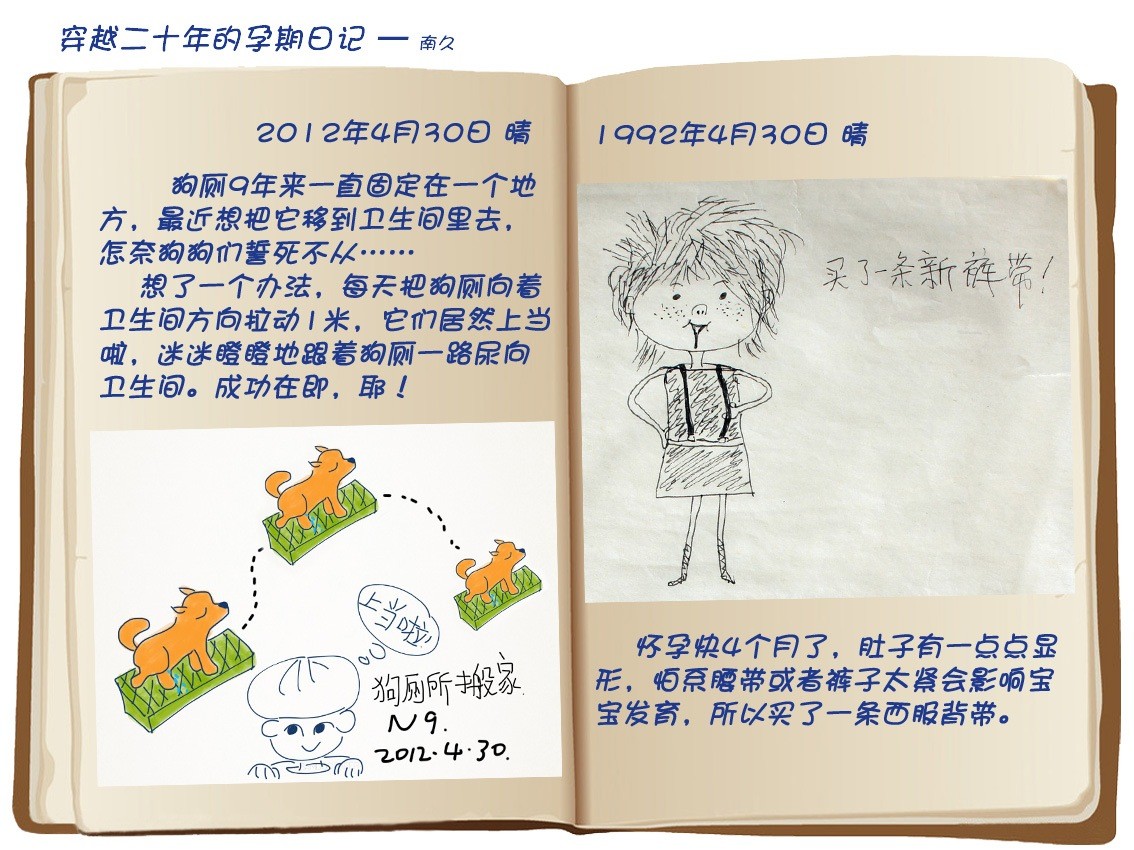 穿越二十年的孕期日记 — 南久
2012年4月30日 晴
狗厕9年来一直固定在一个地
方，最近想把它移到卫生间里去，
怎奈狗狗们誓死不从……
想了一个办法，每天把狗厕向着
卫生间方向拉动1米，它们居然上当
啦，迷迷瞪瞪地跟着狗厕一路尿向
卫生间。成功在即，耶！
上当啦!
狗厕所搬家.
N9.
2012.4.30.
1992年4月30日 晴
买了一条新裤带！
怀孕快4个月了，肚子有一点点显
形，怕系腰带或者裤子太紧会影响宝
宝发育，所以买了一条西服背带。